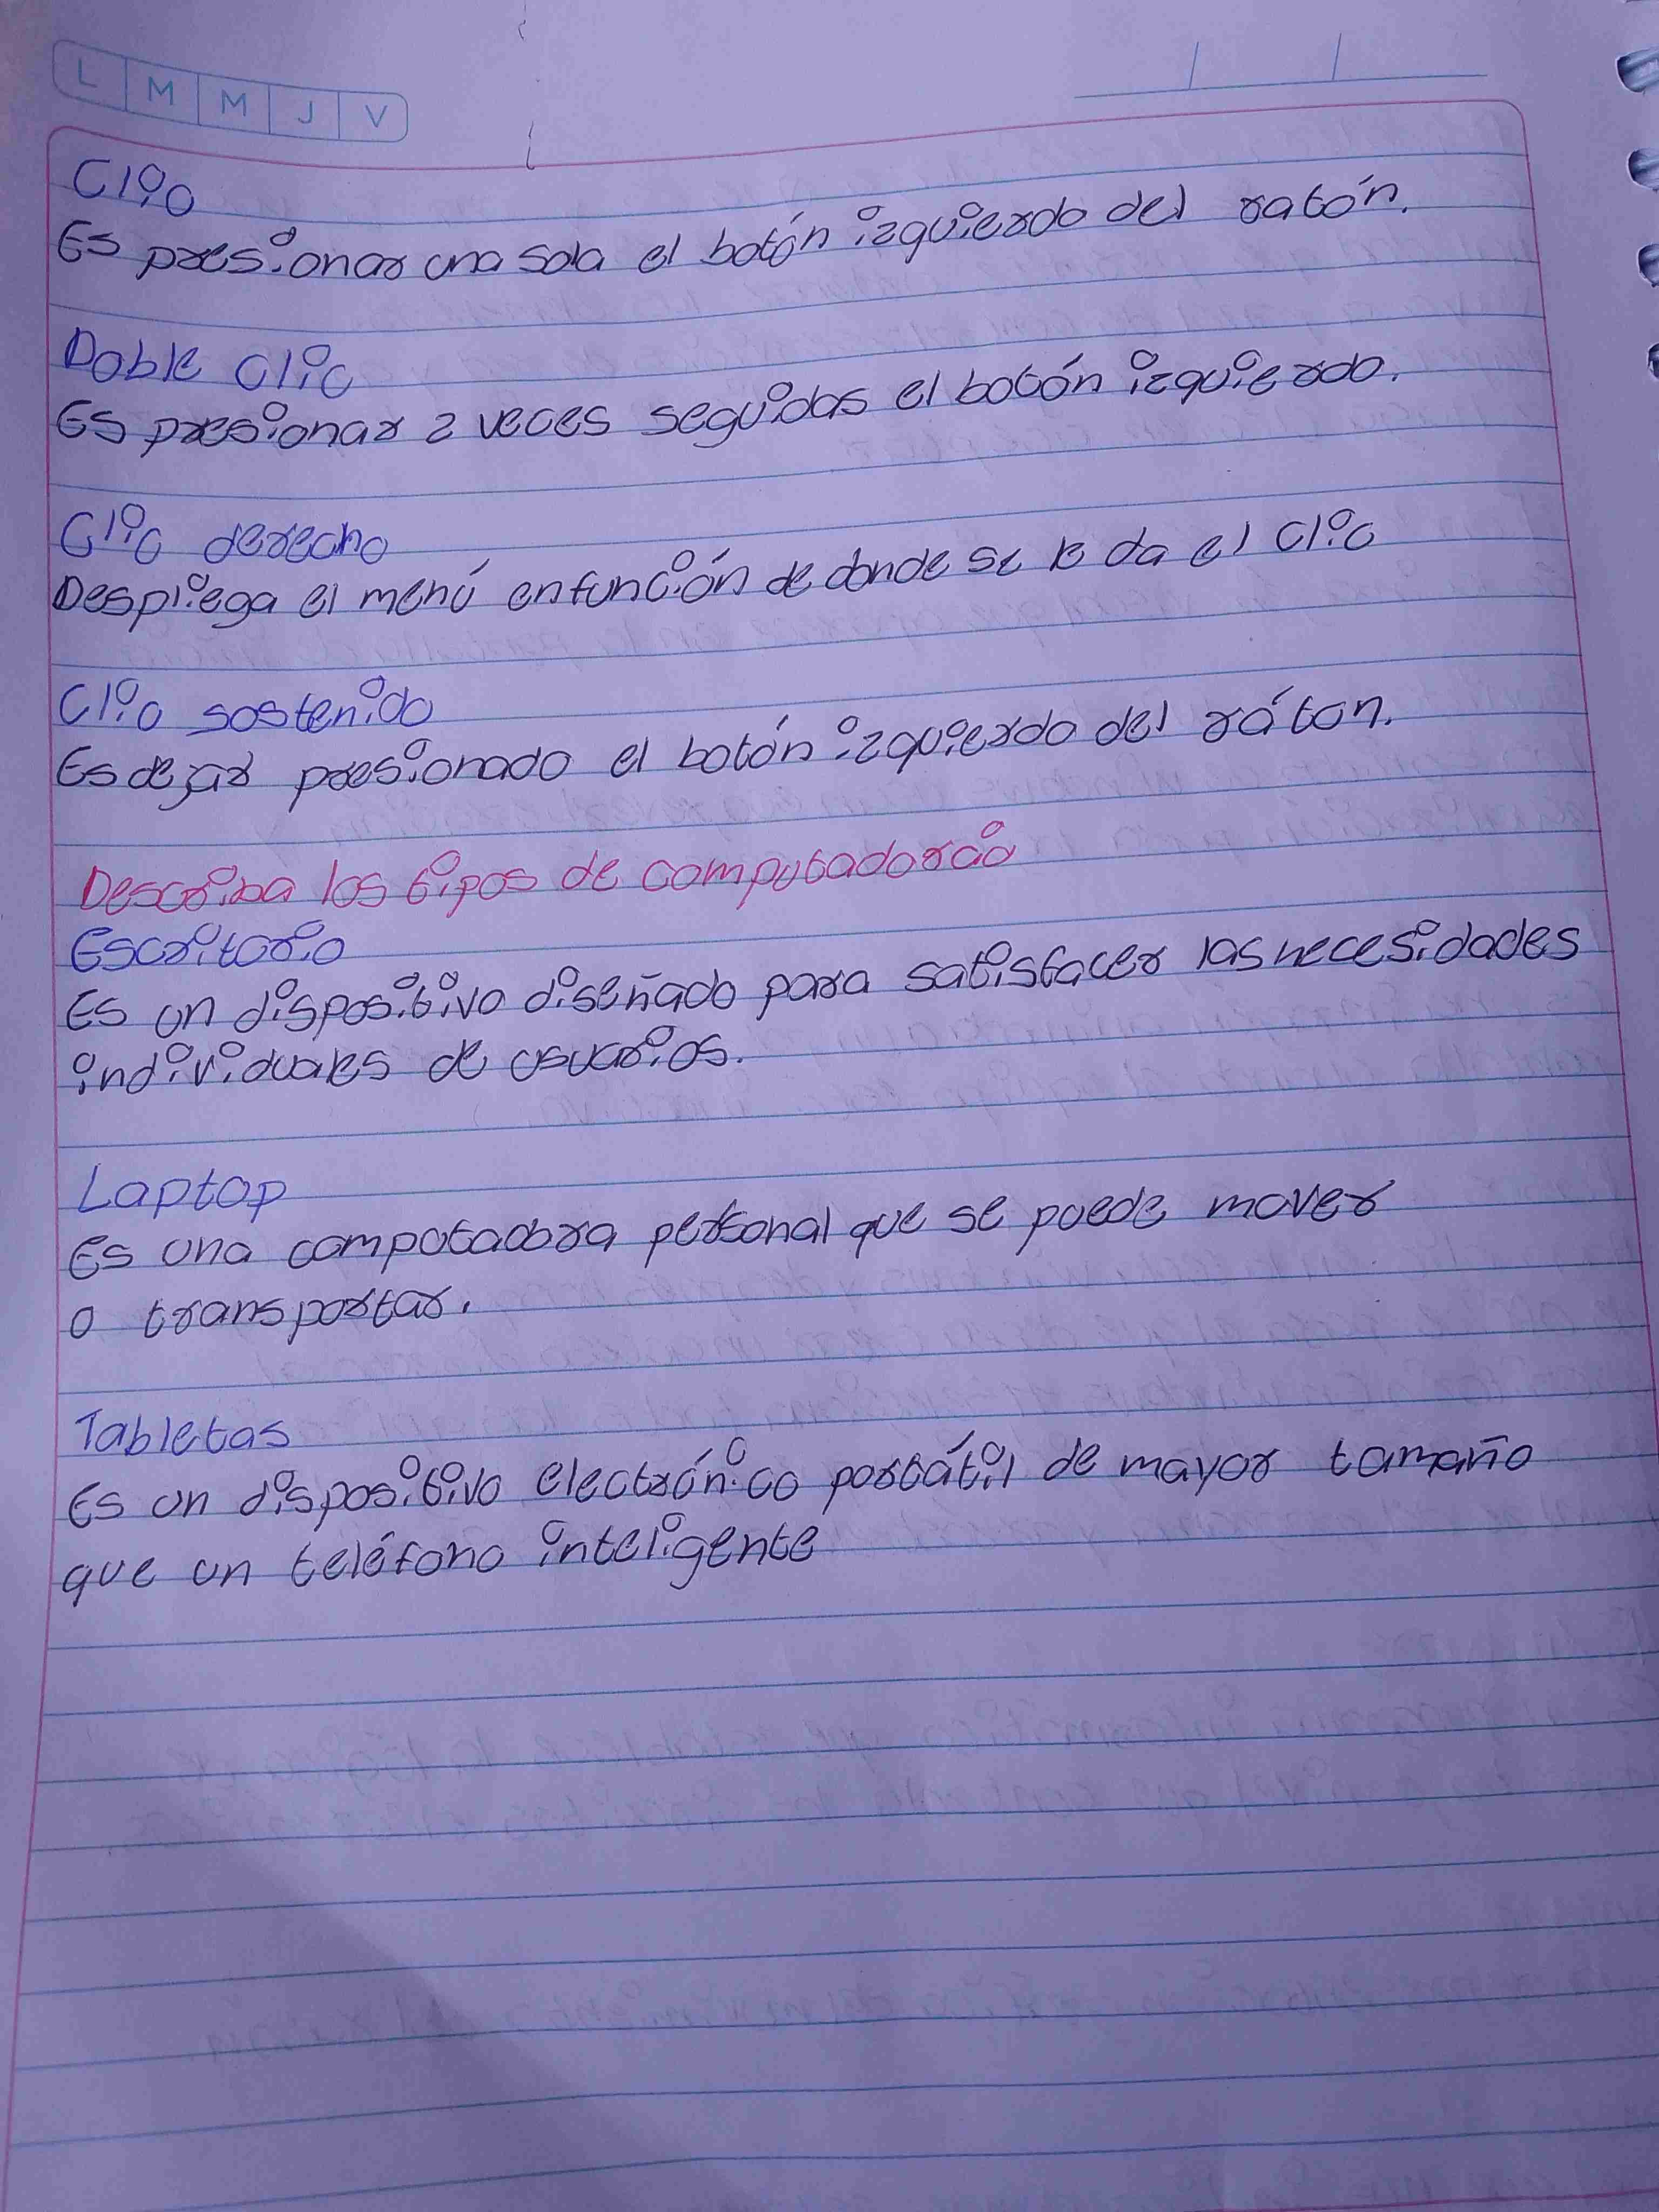 L M M J V
Clic
Es presionar una sola el botón izquierdo del ratón.
Doble clic
Es presionar 2 veces seguidas el botón izquierdo.
Clic derecho
Despliega el menú en función de donde se le da el clic
Clic sostenido
Es dejar presionado el botón izquierdo del ráton.
Describa los tipos de computadoras
Escritorio
Es un dispositivo diseñado para satisfacer las necesidades
individuales de usuarios.
Laptop
Es una computadora personal que se puede mover
o transportar.
Tabletas
Es un dispositivo electrónico portátil de mayor tamaño
que un teléfono inteligente